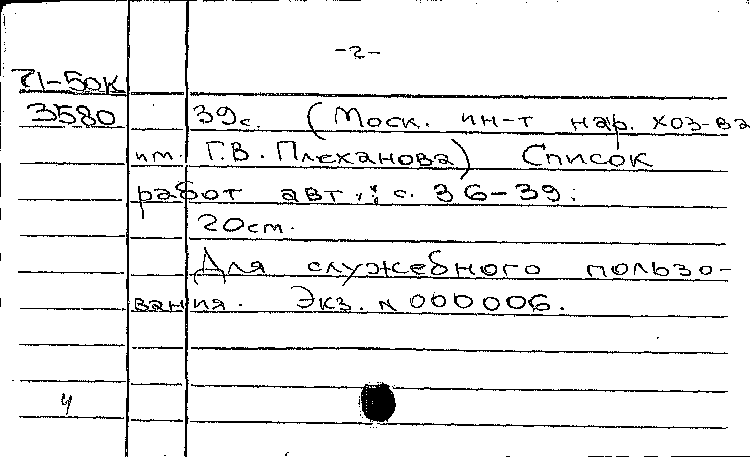 -2-
71-50к
3580 39с. (Моск. ин-т нар. хоз-ва
им. Г.В. Плеханова) Список
работ авт.: с. 36-39.
20см.
Для служебного пользо-
вания. Экз. N 000006.
4